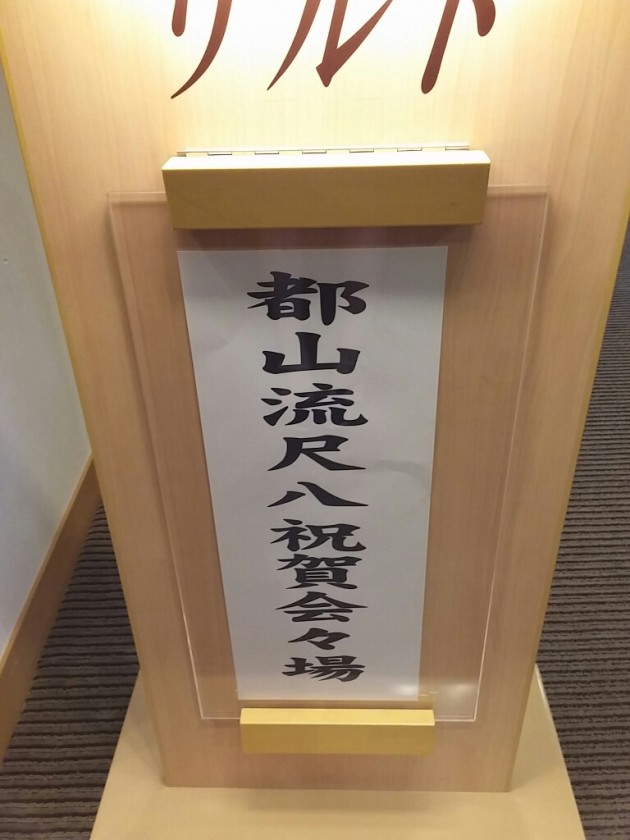 リルド
都山流尺八祝賀会々場